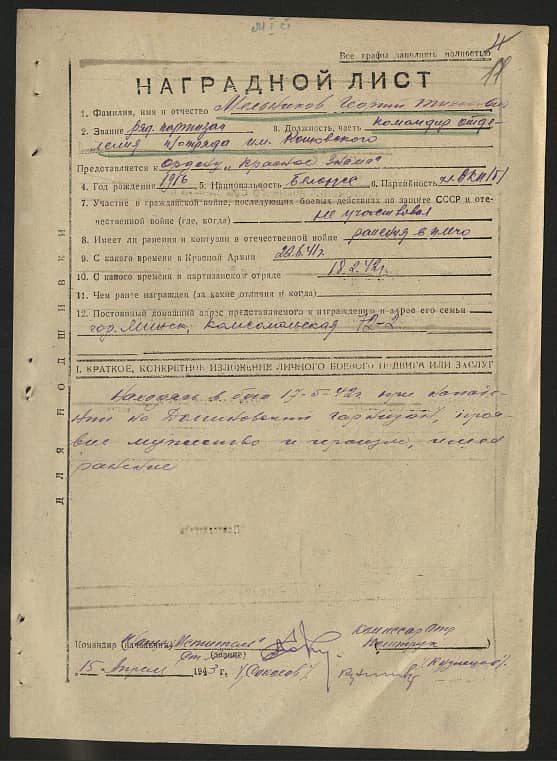 Все графы заполнять полностью
НАГРАДНОЙ ЛИСТ
1. Фамилия, имя и отчество Мельников
2. Звание ряд. партизан 3. Должность, часть командир отде-
ления п/отряда им.
Представляется к Ордену „Красное Знамя"
4. Год рождения 1916 5. Национальность Белорус 6. Партийность чл. ВКП/б/
7. Участие в гражданской войне, последующих боевых действиях по защите СССР и оте-
чественной войне (где, когда) не участвовал
8. Имеет ли ранения и контузии в отечественной войне ранения в плечо
9. С какого времени в Красной Армии 22.6.41г.
10. С какого времени в партизанском отряде 18.2.42г.
11. Чем ранее награжден (за какие отличия и когда)
12. Постоянный домашний адрес представляемого к награждению и адрес его семьи
гор. Минск, Комсомольская 72-2
I. КРАТКОЕ, КОНКРЕТНОЕ ИЗЛОЖЕНИЕ ЛИЧНОГО БОЕВОГО ПОДВИГА ИЛИ ЗАСЛУГ
Находясь в бою 17-5-42г. при нападе-
нии на гарнизон, проя-
вил мужество и героизм, имея
ранение
ДЛЯ ПОДШИВКИ
Командир (начальник)
(звание)
Комиссар
15 Апреля 1943 г. /Соколов/ /Кузнецов/